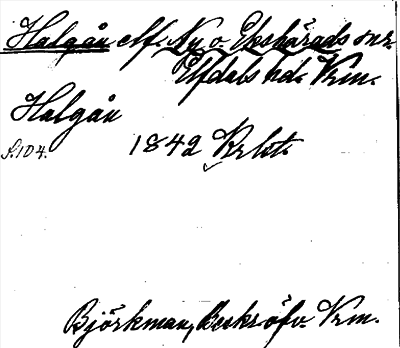 Halgån elf. Ny o. Ekshärads snr.
Elfdals hd. Vrm.
Halgån
S. 104. 1842 Krlst.
Björkman, Beskr. öfv. Vrm.